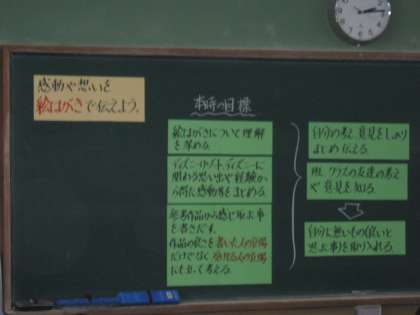 感動や想いを
絵はがきで伝えよう。
本時の目標
絵はがきについて理解
を深める。
関わる思い出や経験か
ら得た感動等をまとめる。
参考作品から感じ取る事
を書きだす。
作品の良さを書いた人の立場
だけでなく受ける人の立場
にも立って考える。
自分の考え意見をしっかり
まとめ伝える。
クラスの友達の考え
や意見を知る。
自分に無いもの(良いと
思ふ事)を取り入れる。